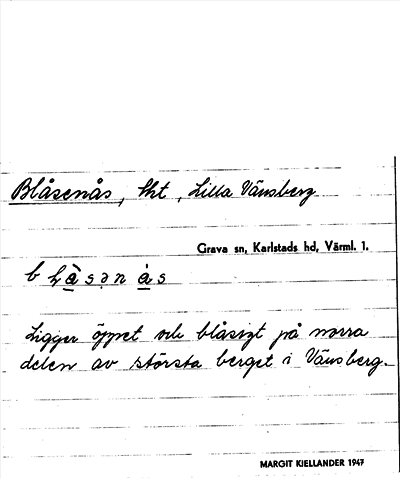 Blåsenås, lht, Lilla Vänsberg
Grava sn, Karlstads hd, Värml. l.
Ligger öppet och blåsigt på norra
delen av största berget i Vänsberg.
MARGIT KIELLANDER 1947